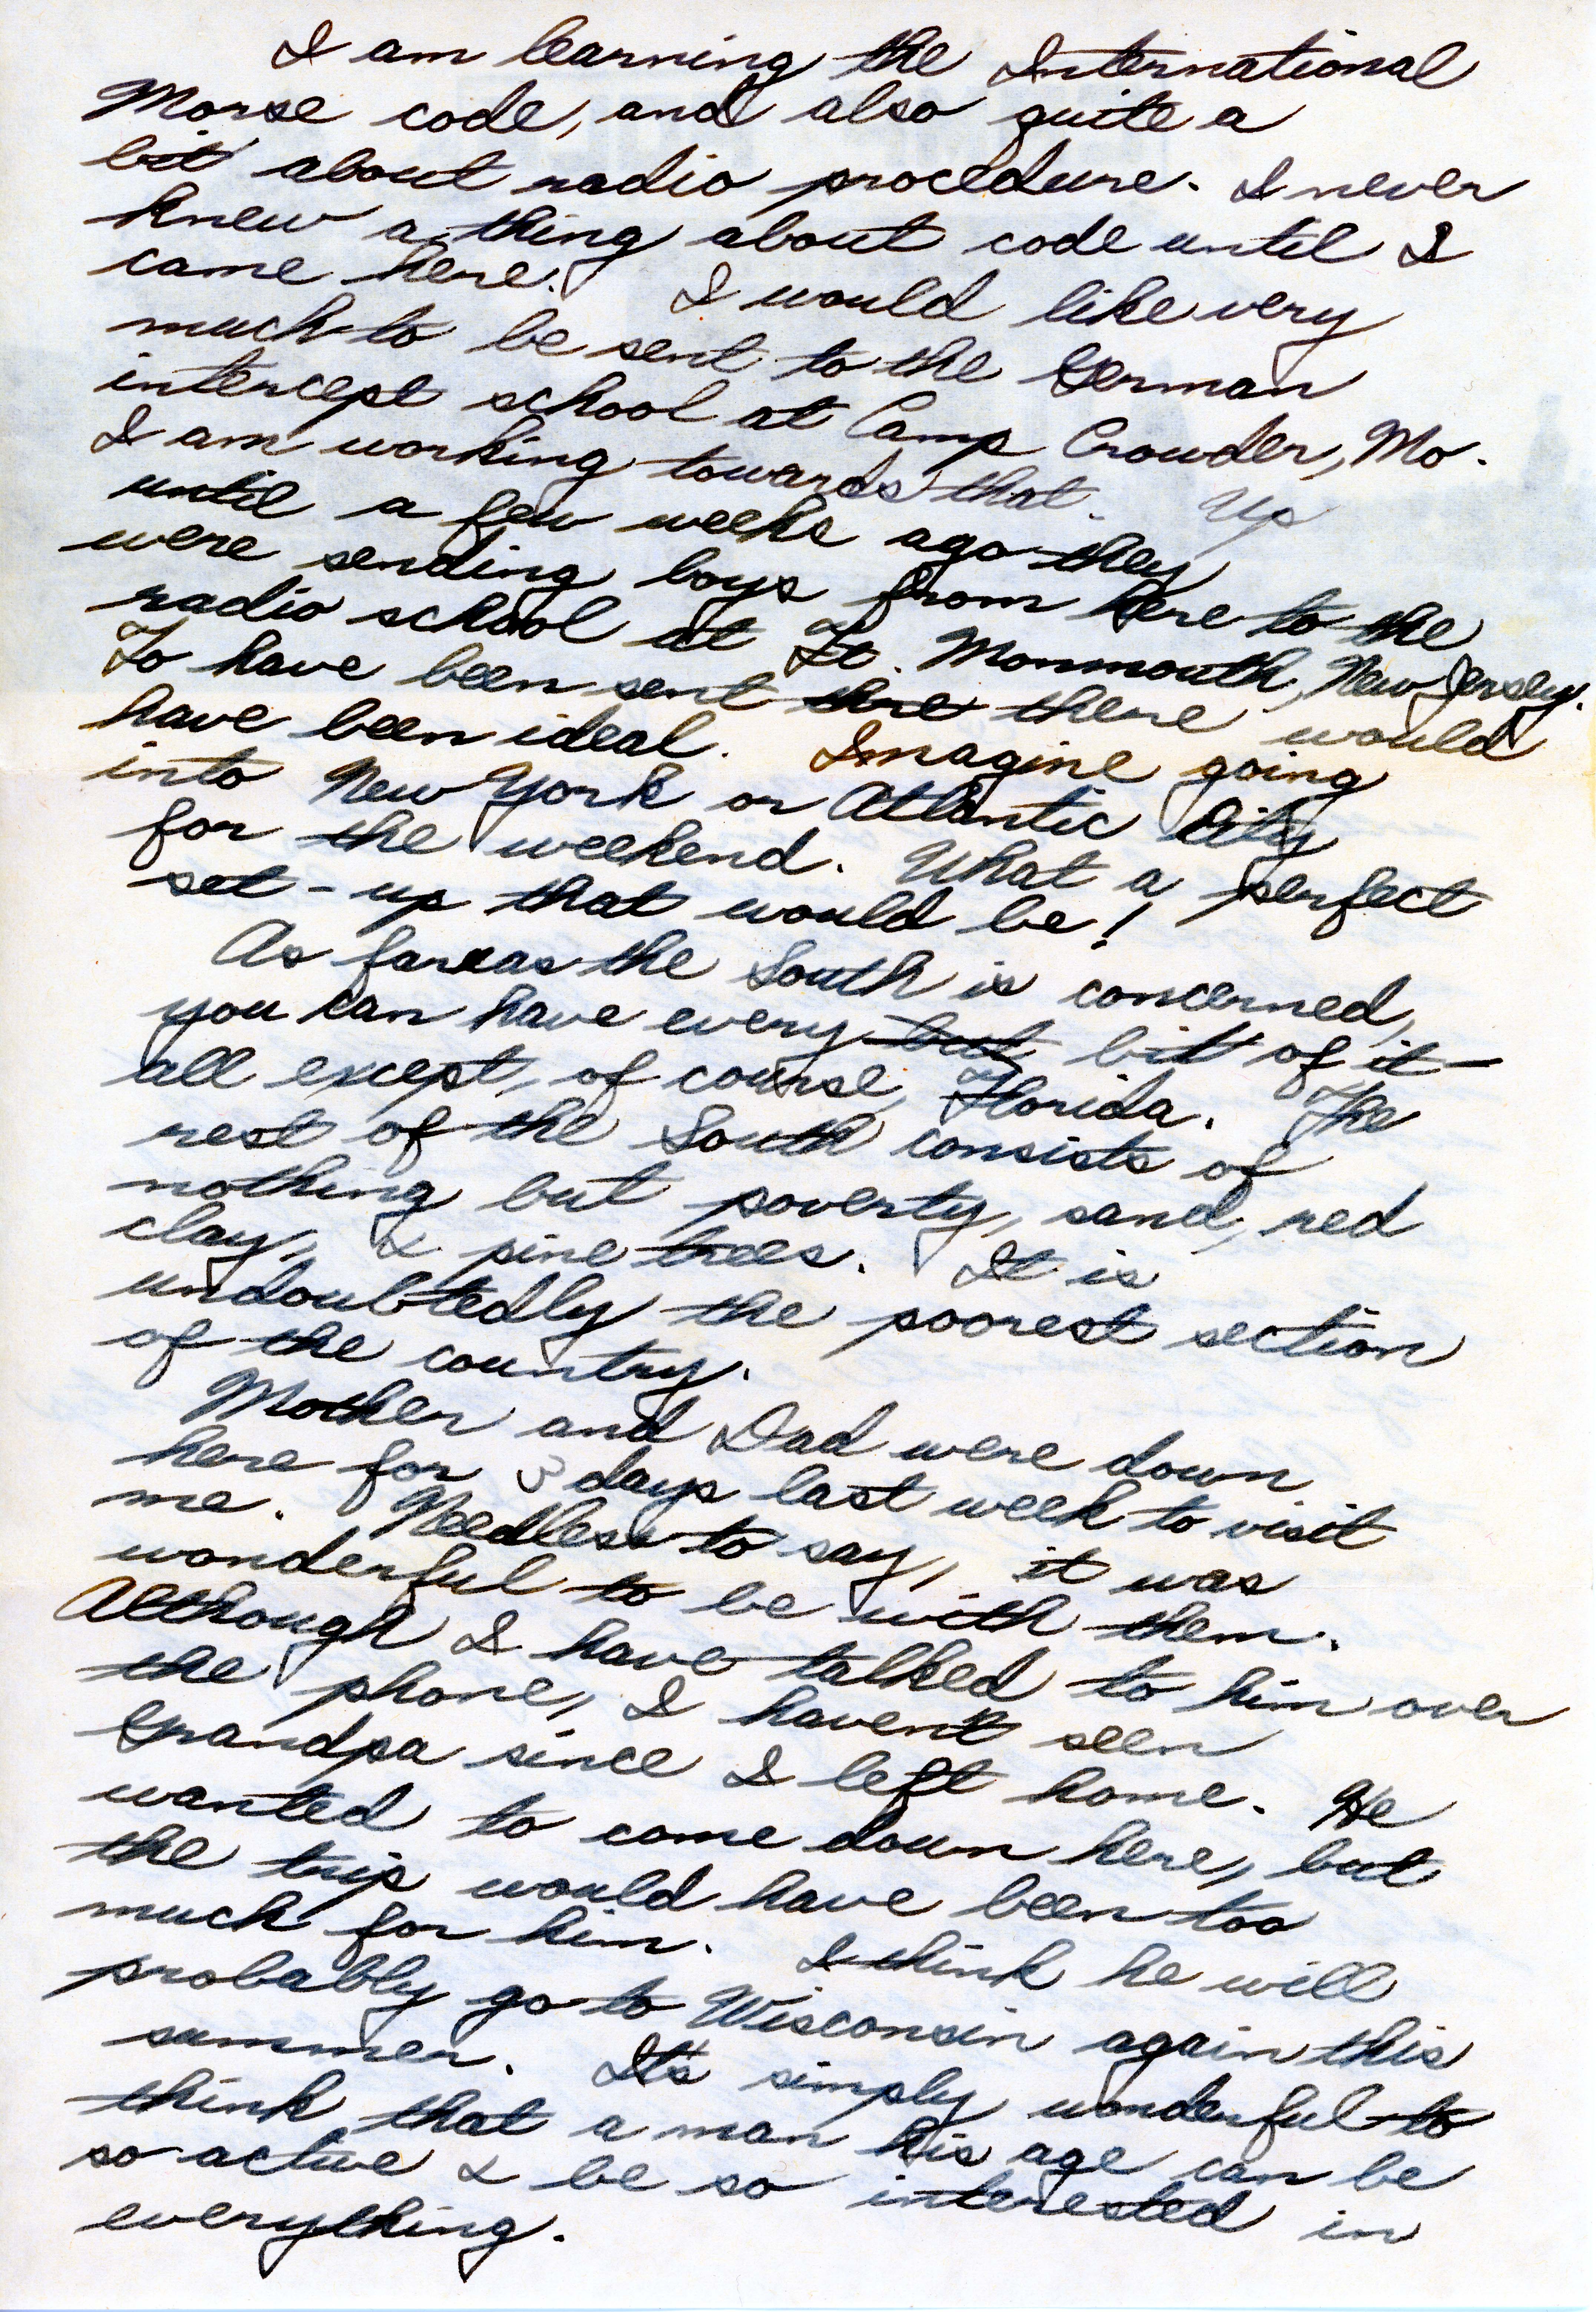 I am learning the International
Morse code, and also quite a
bit about radio procedure. I never
knew a thing about code until I
came here. I would like very
much to be sent to the German
intercept school at Camp Crowder, Mo.
I am working towards that. Up
until a few weeks ago they
were sending boys from here to the
radio school at Ft. Monmouth, New Jersey.
To have been sent there would
have been ideal. Imagine going
into New York or Atlantic City
for the weekend. What a perfect
set-up that would be!
As far as the South is concerned,
you can have every but bit of it—
all except, of course, Florida. The
rest of the South consists of
nothing but poverty, sand, red
clay, & pine trees. It is
undoubtedly the poorest section
of the country.
Mother and Dad were down
here for 3 days last week to visit
me. Needless to say, it was
wonderful to be with them.
Although I have talked to him over
the phone, I haven't seen
Grandpa since I left home. He
wanted to come down here, but
the trip would have been too
much for him. I think he will
probably go to Wisconsin again this
summer. It's simply wonderful to
think that a man his age can be
so active & be so interested in
everything.